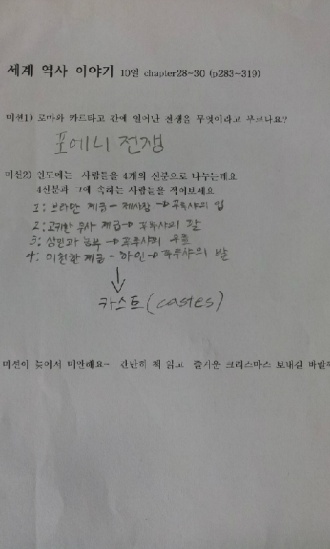 세계 역사 이야기 10일 chapter28~30 (p283~319)
미션1) 로마와 카르타고 간에 일어난 전쟁을 무엇이라고 부르나요?
포에니 전쟁
미션2) 인도에는 사람들을 4개의 신분으로 나누는데요
4신분과 그에 속하는 사람들을 적어보세요
1: 브라만 계급 - 제사장 → 푸루샤의 입
2: 고귀한 무사 계급 → 푸루샤의 팔
3: 상인과 농부 → 푸루샤의
4: 미천한 계급 - 하인 → 푸루샤의 발
↓
카스트 (castes)
미션이 늦어서 미안해요~ 간단히 책 읽고 즐거운 크리스마스 보내길 바랄